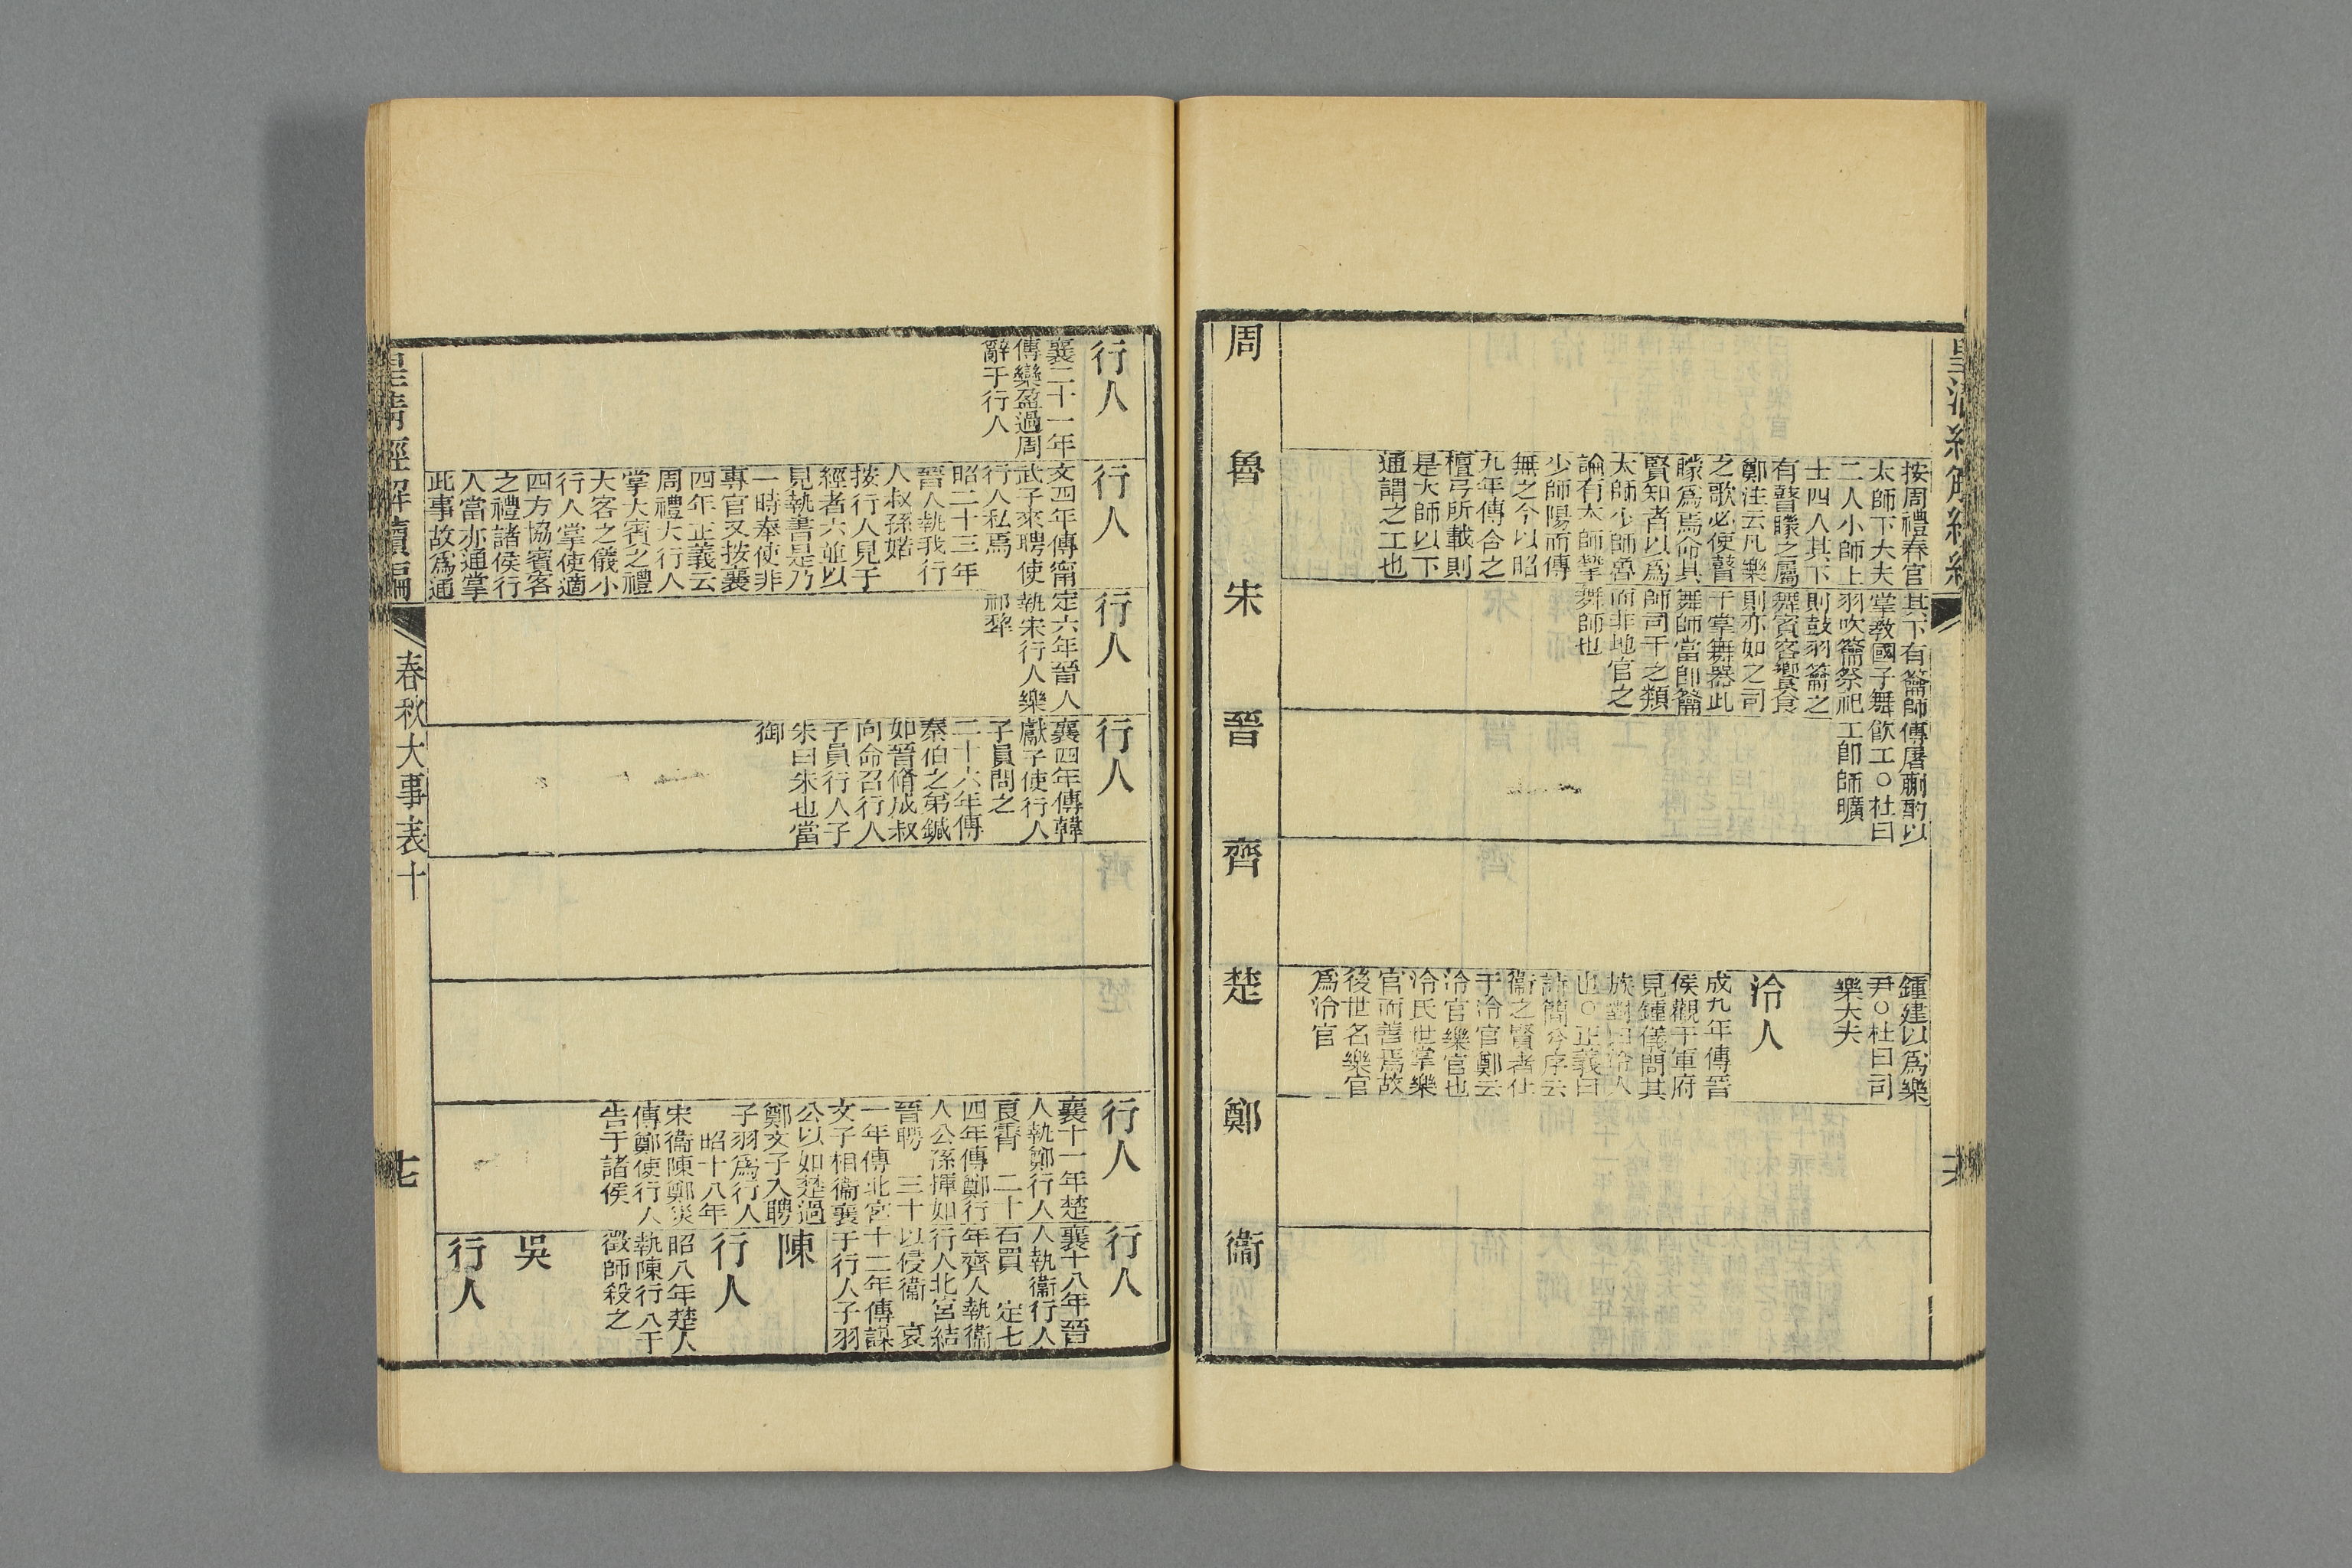 按周禮春官
太師下大夫
二人小師上
士四人其下
有瞽矇之屬
鄭注云凡樂
之歌必使瞽
矇爲焉命其
賢知者以爲
太師少師魯
論有太師摯
少師陽而傳
無之今以昭
九年傳合之
檀弓所載則
是大師以下
通謂之工也
其下有籥師
掌教國子舞
羽吹籥祭祀
則鼓羽籥之
舞賓客饗食
則亦如之司
干掌舞器此
舞師當卽籥
師司干之類
而非地官之
舞師也
傳屠蒯酌以
飮工○杜曰
工卽師曠
鍾建以爲樂
尹○杜曰司
樂大夫
泠人
成九年傳晉
侯觀于軍府
見鍾儀問其
族對曰泠人
也○正義曰
詩簡兮序云
衞之賢者仕
于泠官鄭云
泠官樂官也
泠氏世掌樂
官而善焉故
後世名樂官
爲泠官
周
魯
宋
晉
齊
楚
鄭
衞
行人
襄二十一年
傳欒盈過周
辭于行人
行人
文四年傳甯
武子來聘使
行人私焉
昭二十三年
晉人執我行
人叔孫婼
按行人見于
經者六並以
見執書是乃
一時奉使非
專官又按襄
四年正義云
周禮大行人
掌大賓之禮
大客之儀小
行人掌使適
四方協賓客
之禮諸侯行
人當亦通掌
此事故爲通
行人
定六年晉人
執宋行人樂
祁犂
行人
襄四年傳韓
獻子使行人
子員問之
二十六年傳
秦伯之弟鍼
如晉脩成叔
向命召行人
子員行人子
朱曰朱也當
御
行人
襄十一年楚
人執鄭行人
良霄 二十
四年傳鄭行
人公孫揮如
晉聘 三十
一年傳北宮
文子相衞襄
公以如楚過
鄭文子入聘
子羽爲行人
昭十八年
宋衞陳鄭災
傳鄭使行人
告于諸侯
行人
襄十八年晉
人執衞行人
石買 定七
年齊人執衞
行人北宮結
以侵衞 哀
十二年傳謀
于行人子羽
陳
行人
昭八年楚人
執陳行人干
徵師殺之
吳
行人
皇清經解續編
春秋大事表十